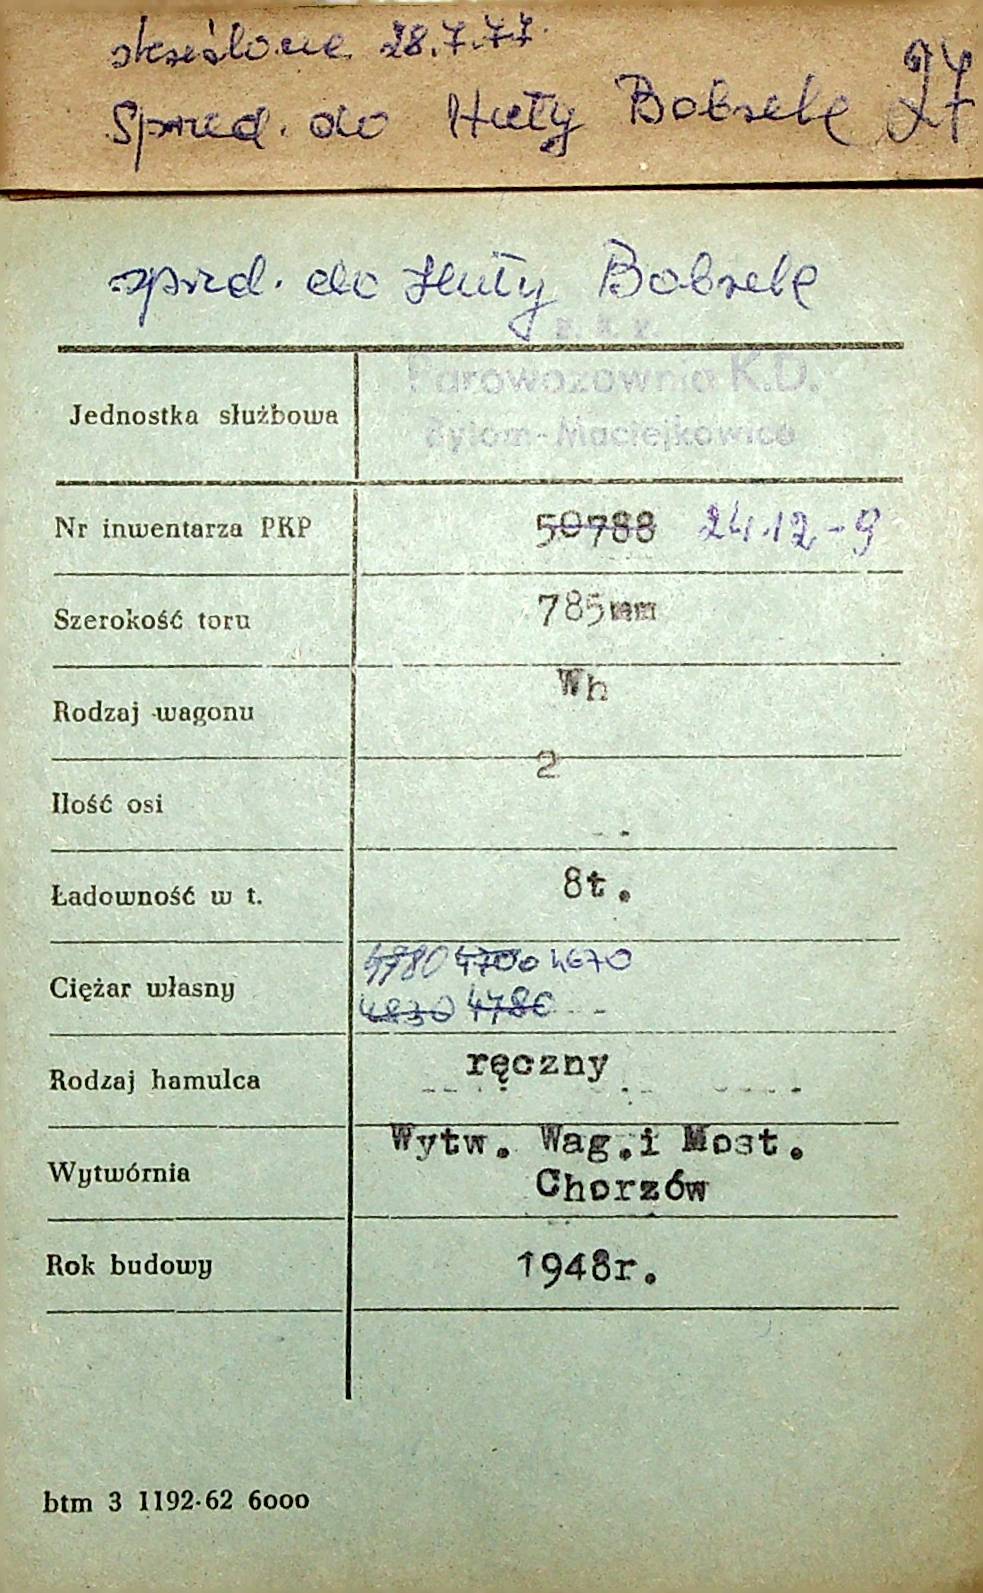 skreślone 28.7.77.
Sprzed. do Huty Bobrek 27
sprzd. do Huty Bobrek
P. K. P.
Parowozownia K.D.
Jednostka służbowa
Bytom-Maciejkowice
Nr inwentarza PKP 50788 24.12-9
Szerokość toru 785mm
Rodzaj wagonu Wh
Ilość osi 2
Ładowność w t. 8t.
4980 4700 4670
Ciężar własny
4830 4780
Rodzaj hamulca ręczny
Wytw. Wag.i Most.
Wytwórnia Chorzów
Rok budowy 1948r.
btm 3 1192-62 6000